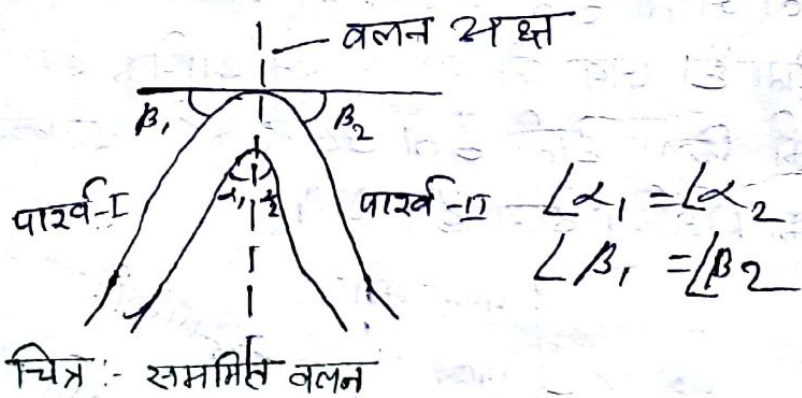 वलन अक्ष
β₁ β₂
α₁ α₂
पार्श्व-I पार्श्व-II ∠α₁ = ∠α₂
∠β₁ = ∠β₂
चित्र :- सममित वलन